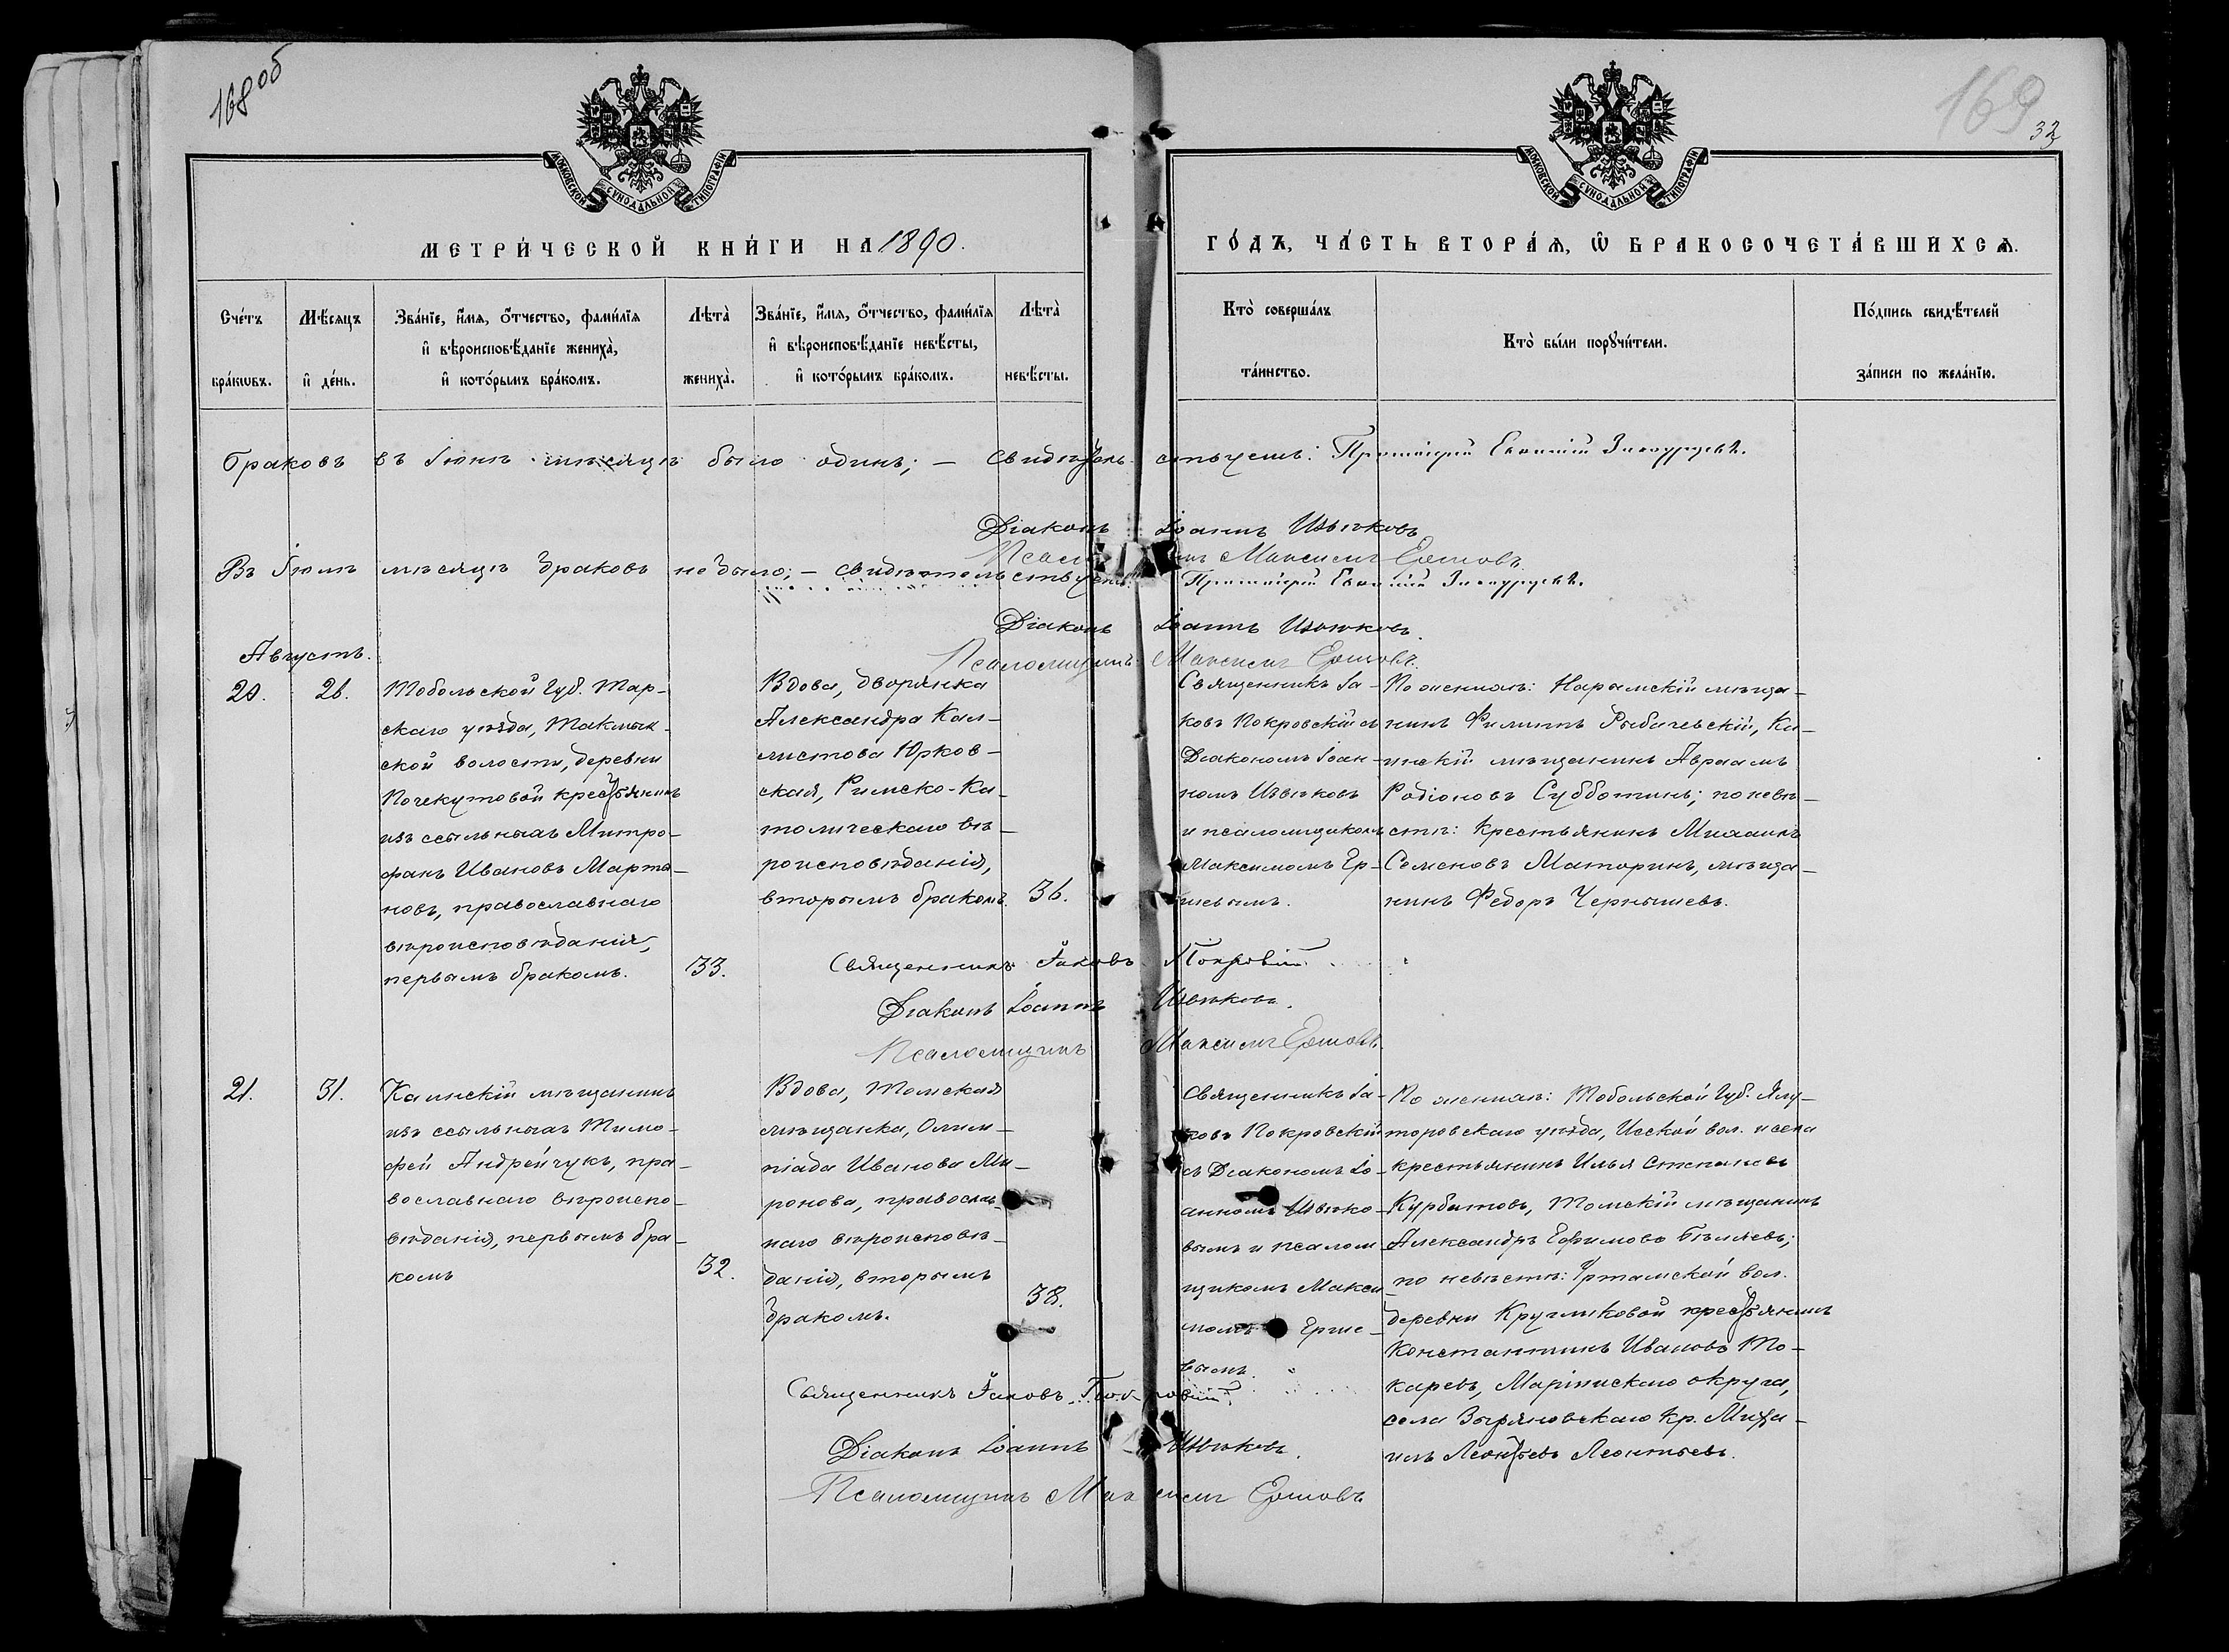 168 об
169
32
МОСКОВСКОЙ СѴНОДАЛЬНОЙ ТИПОГРАФІИ
МОСКОВСКОЙ СѴНОДАЛЬНОЙ ТИПОГРАФІИ
МЕТРИ́ЧЕСКОЙ КНИ́ГИ НА 1890.
ГО́ДЪ, ЧА́СТЬ ВТОРА́Ѧ, Ѡ҆ БРАКОСОЧЕТА́ВШИХСѦ.
Сче́тъ бра́кѡвъ.
Мѣ́сяцъ и҆ де́нь.
Зва́нїе, и҆́мѧ, ѻ҆́тчество, фами́лїѧ
и҆ вѣроисповѣ́данїе жениха̀,
и҆ кото́рымъ бра́комъ.
Лѣта̀ жениха̀.
Зва́нїе, и҆́мѧ, ѻ҆́тчество, фами́лїѧ
и҆ вѣроисповѣ́данїе невѣ́сты,
и҆ кото́рымъ бра́комъ.
Лѣта̀ невѣ́сты.
Кто̀ соверша́лъ
та́инство.
Кто̀ бы́ли порꙋчи́тели.
По́дпись свидѣ́телей
за́писи по жела́нїю.
Браковъ въ Іюнѣ мѣсяцѣ было одинъ; – свидѣтель- ствуемъ: Протоіерей Евѳимій
Діаконъ Іоаннъ Извѣковъ
Максимъ Ершовъ
Въ Іюлѣ мѣсяцѣ браковъ не было; – свидѣтельствуемъ: Протоіерей Евѳимій
Діаконъ Іоаннъ Извѣковъ.
Псаломщикъ Максимъ Ершовъ.
Августъ.
20.
26.
Тобольской Губ. Тар-
скаго уѣзда, Такмык-
ской волости, деревни
Почекутовой крестьянинъ
изъ ссыльныхъ Митро-
фанъ Ивановъ Марты-
новъ, православнаго
вѣроисповѣданія,
первымъ бракомъ.
33.
Вдова, дворянка
Александра Кал-
листова Юрков-
ская, Римско-Ка-
толическаго вѣ-
роисповѣданія,
вторымъ бракомъ.
36.
Священникъ Іа-
ковъ Покровскій съ
Діакономъ Іоан-
номъ Извѣковъ
и псаломщикомъ
Максимомъ Ер-
шевымъ.
По женихѣ: Нарымскій мѣща-
нинъ Филиппъ Рыбачевскій, Ка-
инскій мѣщанинъ Авраамъ
Родіоновъ Субботинъ; по невѣ-
стѣ: крестьянинъ Михаилъ
Семеновъ Маторинъ, мѣща-
нинъ Федоръ Чернышевъ.
Священникъ Іаковъ Покровскій
Діаконъ Іоаннъ Извѣковъ.
Псаломщикъ Максимъ Ершовъ.
21.
31.
Каинскій мѣщанинъ
изъ ссыльныхъ Тимо-
фей Андрейчукъ, пра-
вославнаго вѣроиспо-
вѣданія, первымъ бра-
комъ
32.
Вдова, Томская
мѣщанка, Олим-
піада Иванова Ми-
ронова, православ-
наго вѣроисповѣ-
данія, вторымъ
бракомъ.
38.
Священникъ Іа-
ковъ Покровскій
съ Діакономъ Іо-
анномъ Извѣко-
вымъ и псалом-
щикомъ Макси-
момъ Ерше-
вымъ.
По женихѣ: Тобольской Губ. Ялу-
торовскаго уѣзда, Исской вол. и села
крестьянинъ Илья Степановъ
Курбатовъ, Томскій мѣщанинъ
Александръ Ефимовъ Бѣляевъ;
по невѣстѣ: Уртамской вол.
деревни Кругликовой крестьянинъ
Константинъ Ивановъ То-
каревъ, Маріинскаго округа,
села Зыряновскаго кр. Миха-
илъ Леонтьевъ Леонтьевъ.
Священникъ Іаковъ Покровскій
Діаконъ Іоаннъ Извѣковъ.
Псаломщикъ Максимъ Ершовъ